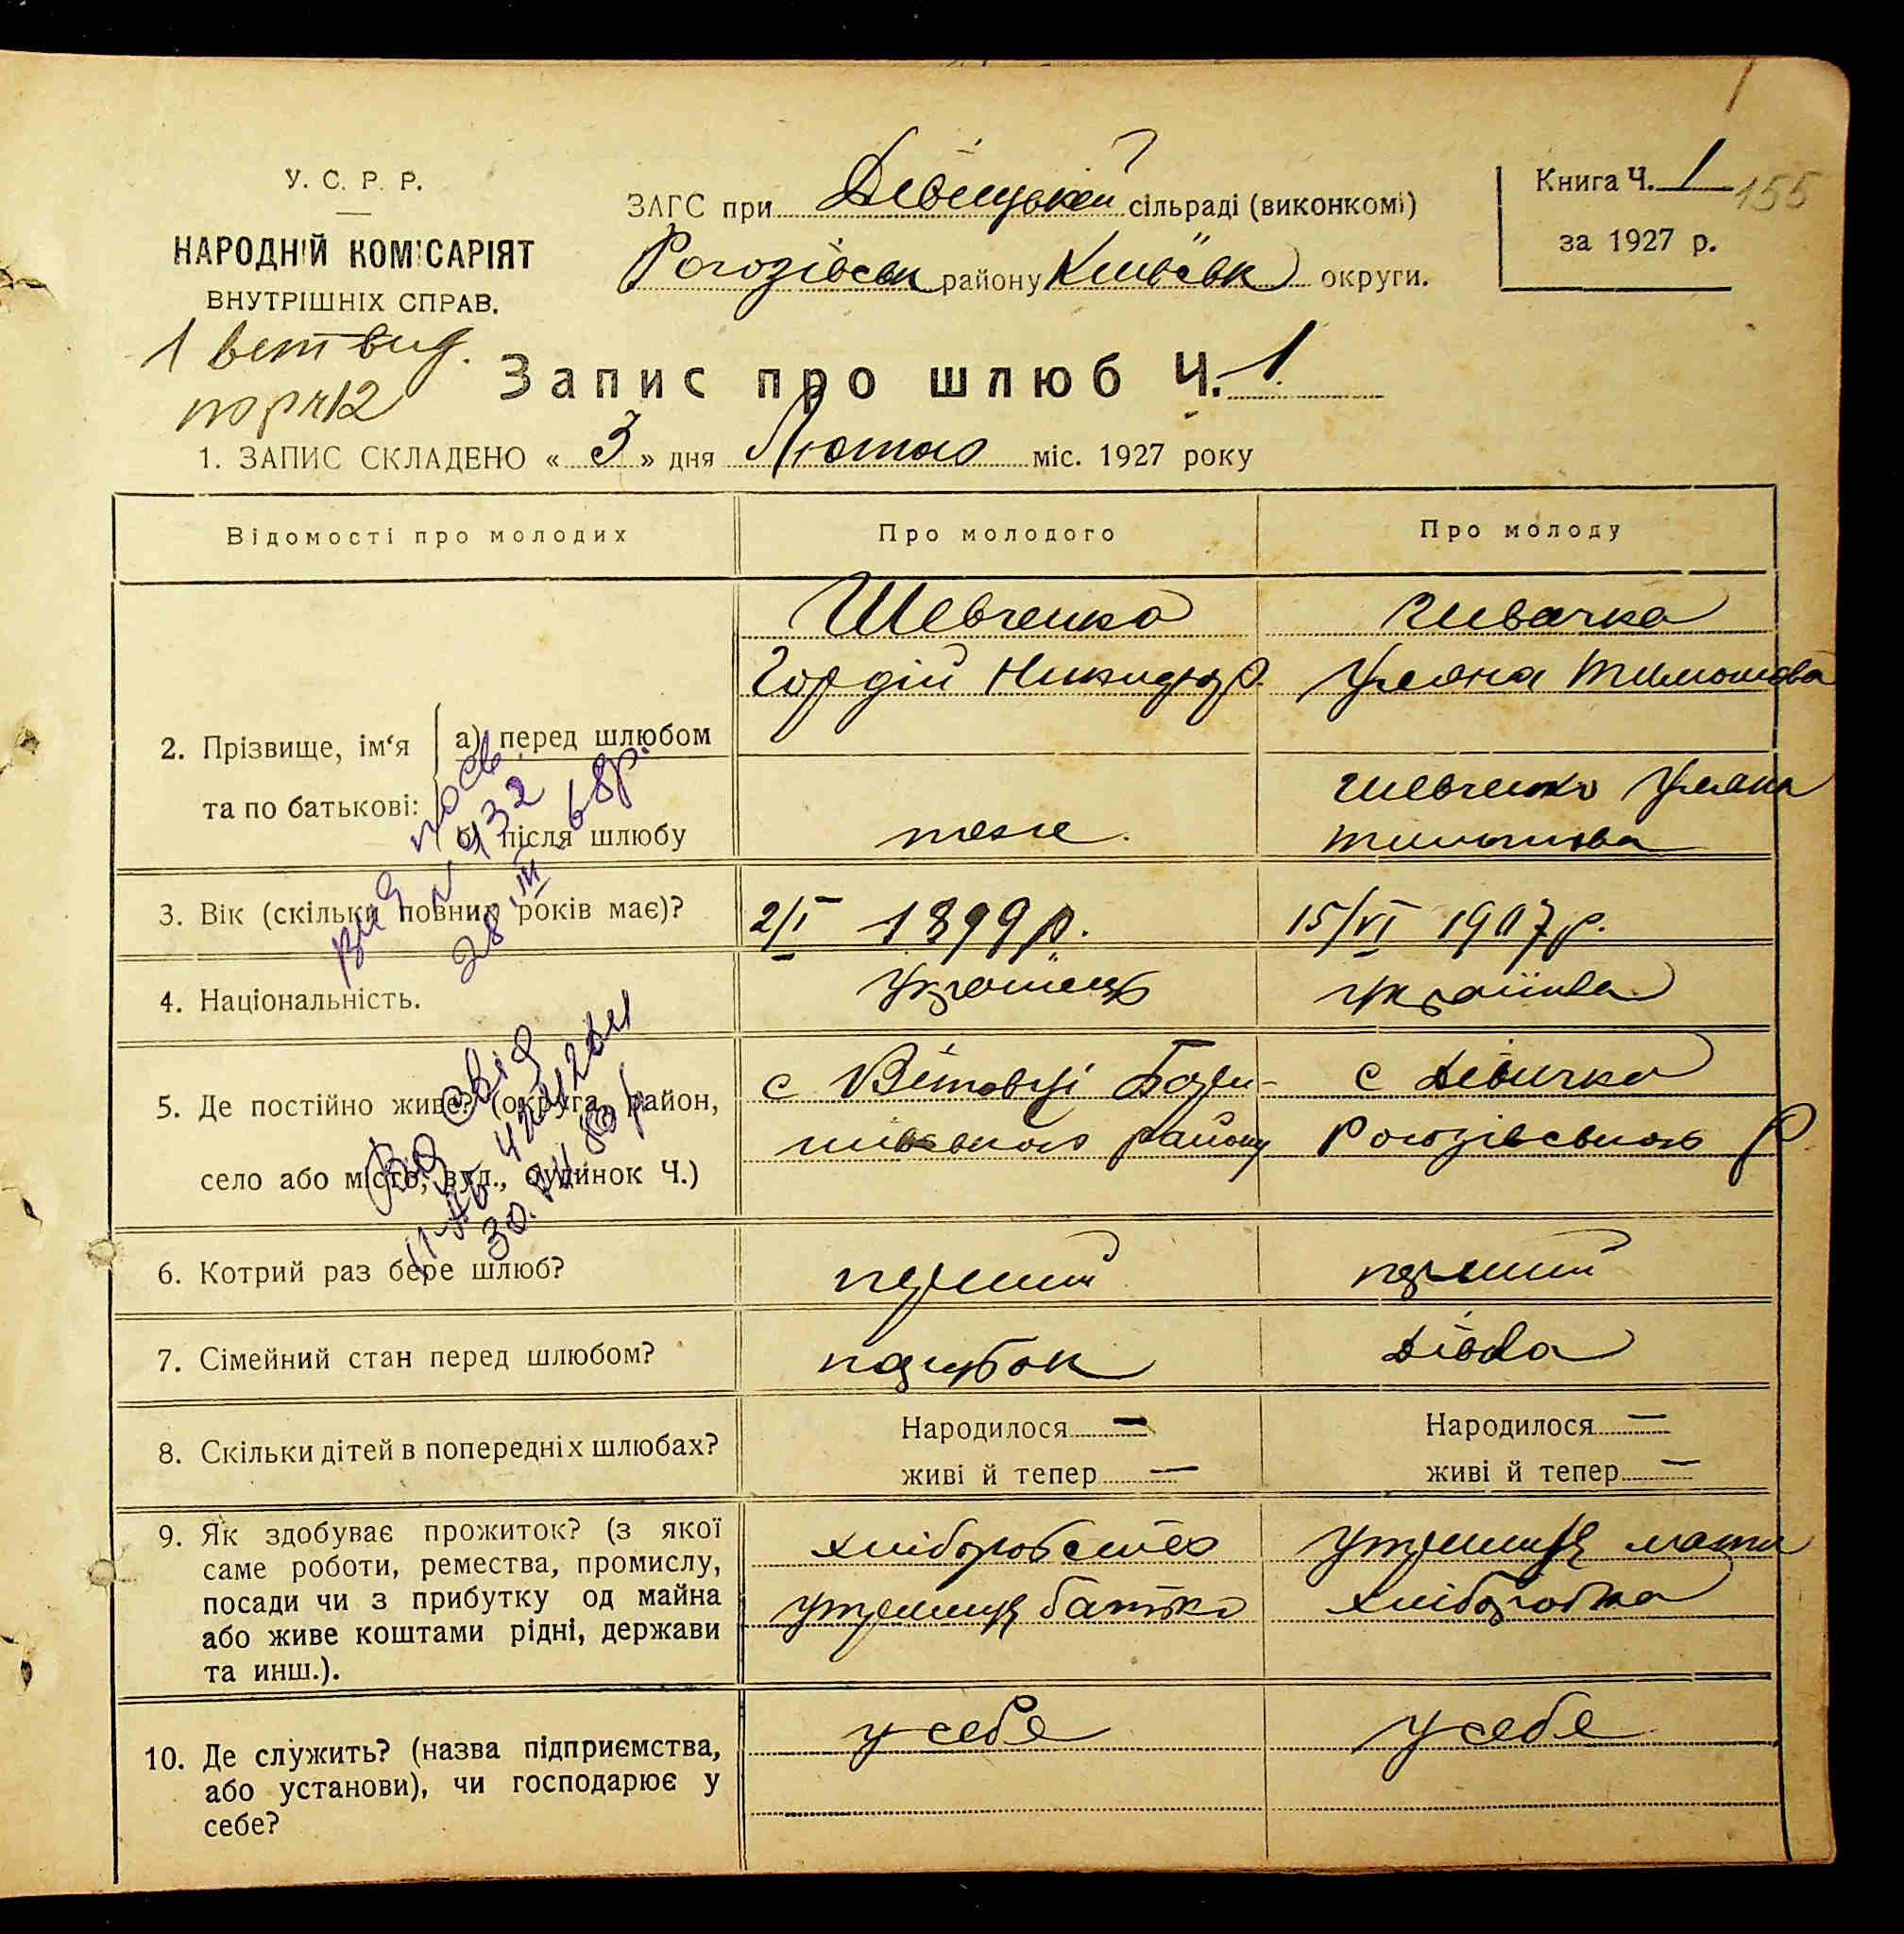 У. С. Р. Р.
НАРОДНІЙ КОМІСАРІЯТ
ВНУТРІШНІХ СПРАВ.
ЗАГС при Дівицькій сільраді (виконкомі)
Рогозівськ району Київськ округи.
Книга Ч. 1
155
за 1927 р.
Запис про шлюб Ч. 1.
1. ЗАПИС СКЛАДЕНО « 3 » дня Лютого міс. 1927 року
Відомості про молодих
Про молодого
Про молоду
2. Прізвище, ім‘я та по батькові:
а) перед шлюбом
Шевченко
Гордій
Уляна Тимошова
б) після шлюбу
теже.
Шевченко Уляна
Тимошова
3. Вік (скільки повних років має)?
2/I 1899 р.
15/VI 1907 р.
4. Національність.
Українець
українка
5. Де постійно живе? (округа, район,
село або місто, вул., будинок Ч.)
с Вітовці Бори-
пільського району
с Дівичка
Рогозівського р
6. Котрий раз бере шлюб?
перший
перший
7. Сімейний стан перед шлюбом?
парубок
дівка
8. Скільки дітей в попередніх шлюбах?
Народилося —
живі й тепер —
Народилося —
живі й тепер —
9. Як здобуває прожиток? (з якої
саме роботи, ремества, промислу,
посади чи з прибутку од майна
або живе коштами рідні, держави
та инш.).
утримує батько
утримує мати
хліборобка
10. Де служить? (назва підприємства,
або установи), чи господарює у
себе?
у себе
у себе